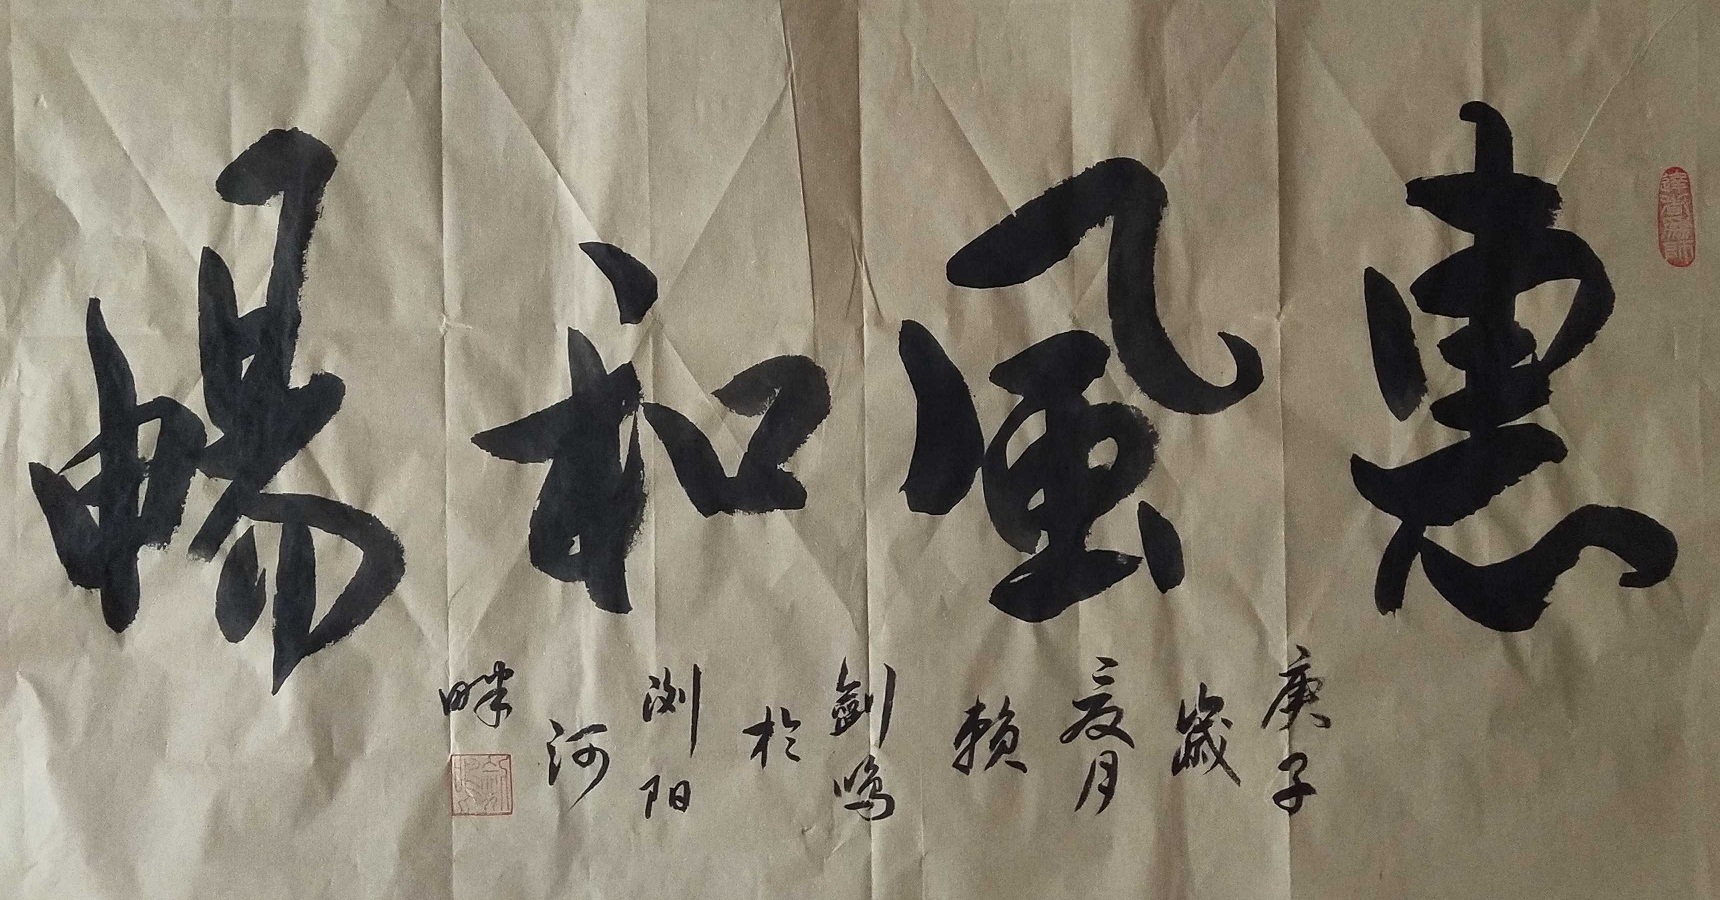 惠風和暢
庚子歲夏月賴劍鳴於浏阳河畔